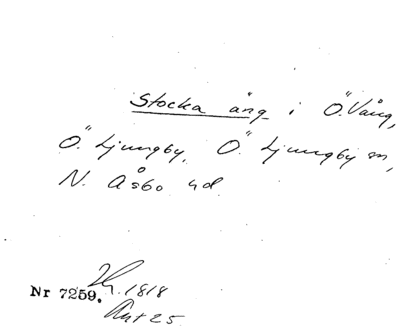 Stocka äng i Ö. Vång,
Ö. Ljungby, Ö. Ljungby sn,
N. Åsbo hd.
Nr 7259. 1818
Akt 25